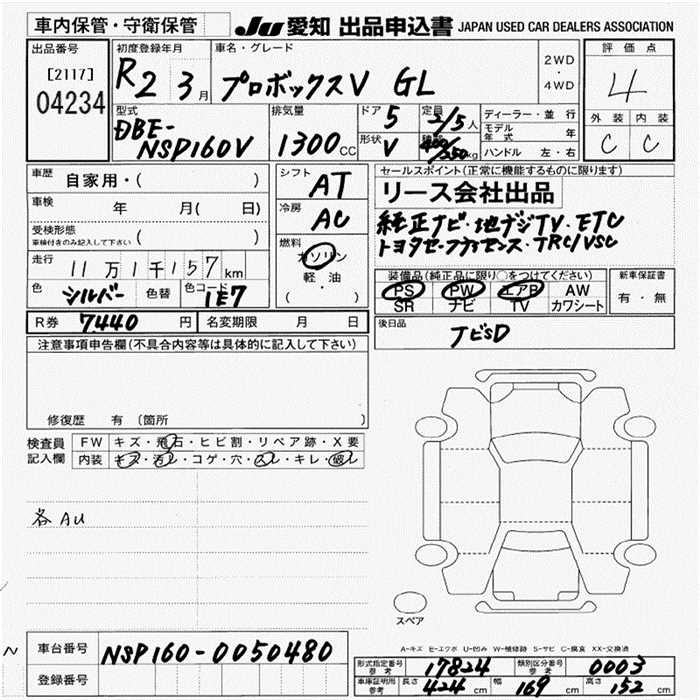 車内保管・守衛保管
JU 愛知 出品申込書 JAPAN USED CAR DEALERS ASSOCIATION
出品番号
[2117]
04234
初度登録年月
R2 3月
車名・グレード
プロボックスV GL
2WD
・
4WD
評価点
4
外装 内装
C C
型式
DBE-
NSP160V
排気量
1300cc
ドア 5
形状 V
定員 2/5人
積載 400/250kg
ディーラー・並行
モデル年式 年
ハンドル 左・右
車歴 自家用・( )
車検 年 月( 日)
受検形態
車検付きのみ記入して下さい ( )
走行 11万1千157km
色 シルバー 色替 色コード 1E7
シフト AT
冷房 AC
燃料
ガソリン
・
軽油
・
( )
セールスポイント(正常に機能するものに限ります)
リース会社出品
純正ナビ・地デジTV・ETC
トヨタセーフティセンス・TRC/VSC
装備品(純正品に限り○をつけてください)
PS PW エアB AW
SR ナビ TV カワシート
新車保証書
有・無
R券 7440円 名変期限 月 日
後日品
ナビSD
注意事項申告欄(不具合内容等は具体的に記入して下さい)
修復歴 有 (箇所 )
検査員記入欄
FW キズ・飛石・ヒビ割・リペア跡・X要
内装 キズ・汚レ・コゲ・穴・スレ・キレ・破レ
各AU
スペア
A-キズ E-エクボ U-凹み W-補修跡 S-サビ C-腐食 XX-交換済
~
車台番号 NSP160-0050480
登録番号
形式指定番号 参考 17824 類別区分番号 参考 0003
車庫証明用 参考 長さ 424cm 幅 169cm 高さ 152cm